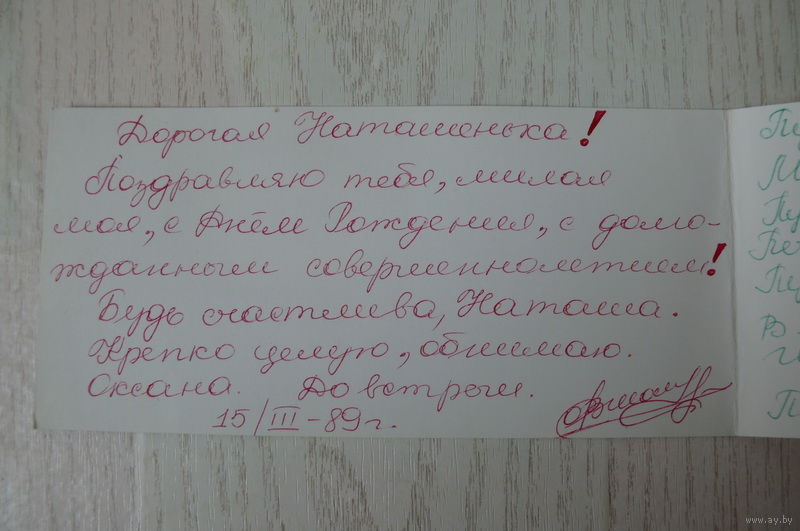 Дорогая Наташенька!
Поздравляю тебя, милая
моя, с Днём Рождения, с долго-
жданным совершеннолетием!
Будь счастлива, Наташа.
Крепко целую, обнимаю.
Оксана. До встречи.
15/III-89г.
Пу
М
Пу
Пу
В
П
www.ay.by